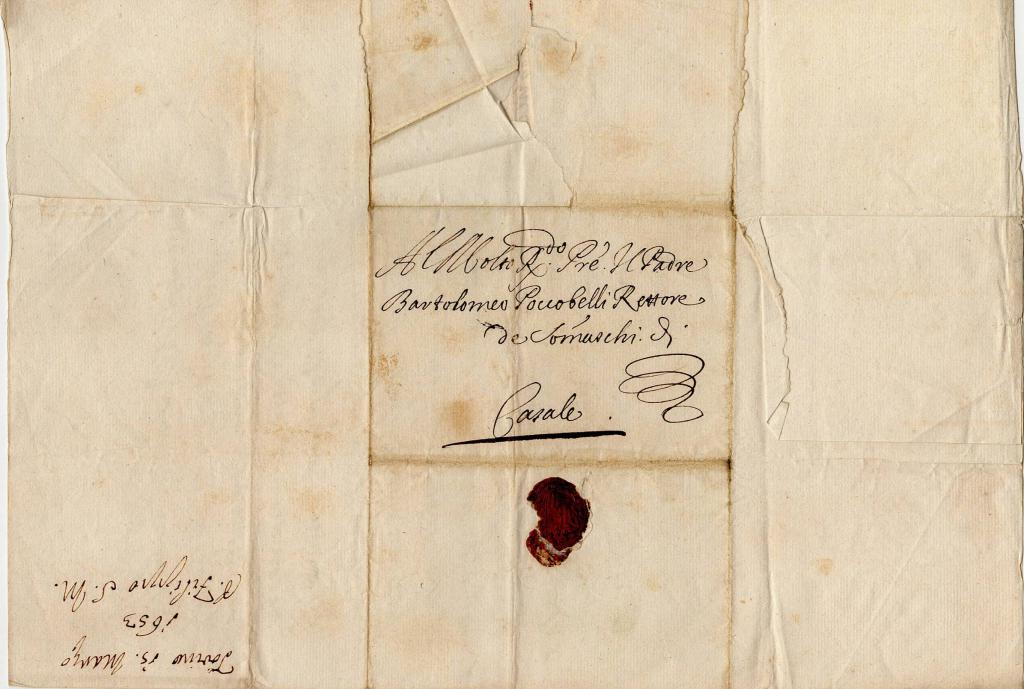 Al Molto R.do Pre. Il Padre
Bartolomeo Poccobelli Rettore
de Somaschi. di
Casale.
Torino 15. Marzo
1653
P. Filippo S. M.